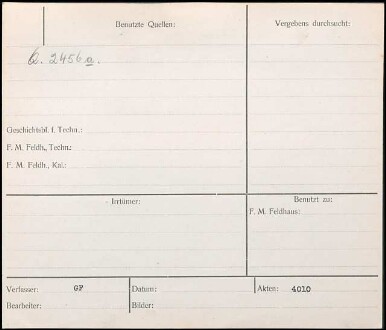 Benutzte Quellen:
Vergebens durchsucht:
Q. 2456 a.
Geschichtsbl. f. Techn.:
F. M. Feldh., Techn.:
F. M. Feldh., Kal.:
Irrtümer:
Benutzt zu:
F. M. Feldhaus:
Verfasser: GF
Datum:
Akten: 4010
Bearbeiter:
Bilder: